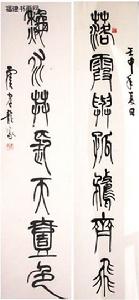 福建书画网
壬申年夏日
落霞與孤鶩齊飛
秋水共長天一色